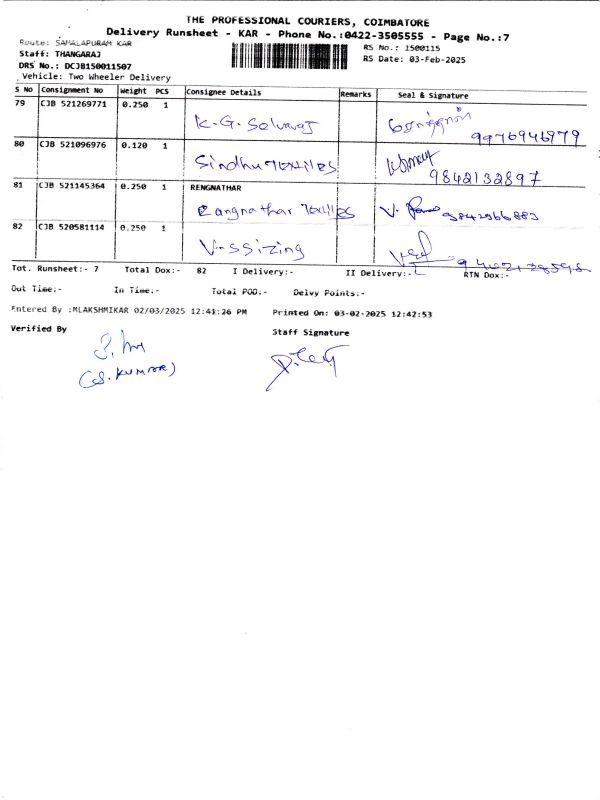 THE PROFESSIONAL COURIERS, COIMBATORE
Delivery Runsheet - KAR - Phone No.:0422-3505555 - Page No.:7
Route: SAMALAPURAM KAR
RS No.: 1500115
Staff: THANGARAJ
RS Date: 03-Feb-2025
DRS No.: DCJB150011507
Vehicle: Two Wheeler Delivery
S No Consignment No Weight PCS Consignee Details Remarks Seal & Signature
79 CJB 521269771 0.250 1
K.G. Selvaraj
9976946979
80 CJB 521096976 0.120 1
Sindhu Textiles
9842132897
81 CJB 521145364 0.250 1 RENGNATHAR
Rangnathar Textiles V. 9842966883
82 CJB 520581114 0.250 1
V-ssizing
Tot. Runsheet:- 7 Total Dox:- 82 I Delivery:- II Delivery:- RTN Dox:-
Out Time:- In Time:- Total POD:- Delvy Points:-
Entered By :MLAKSHMIKAR 02/03/2025 12:41:26 PM Printed On: 03-02-2025 12:42:53
Verified By Staff Signature
(S. KUMAR)